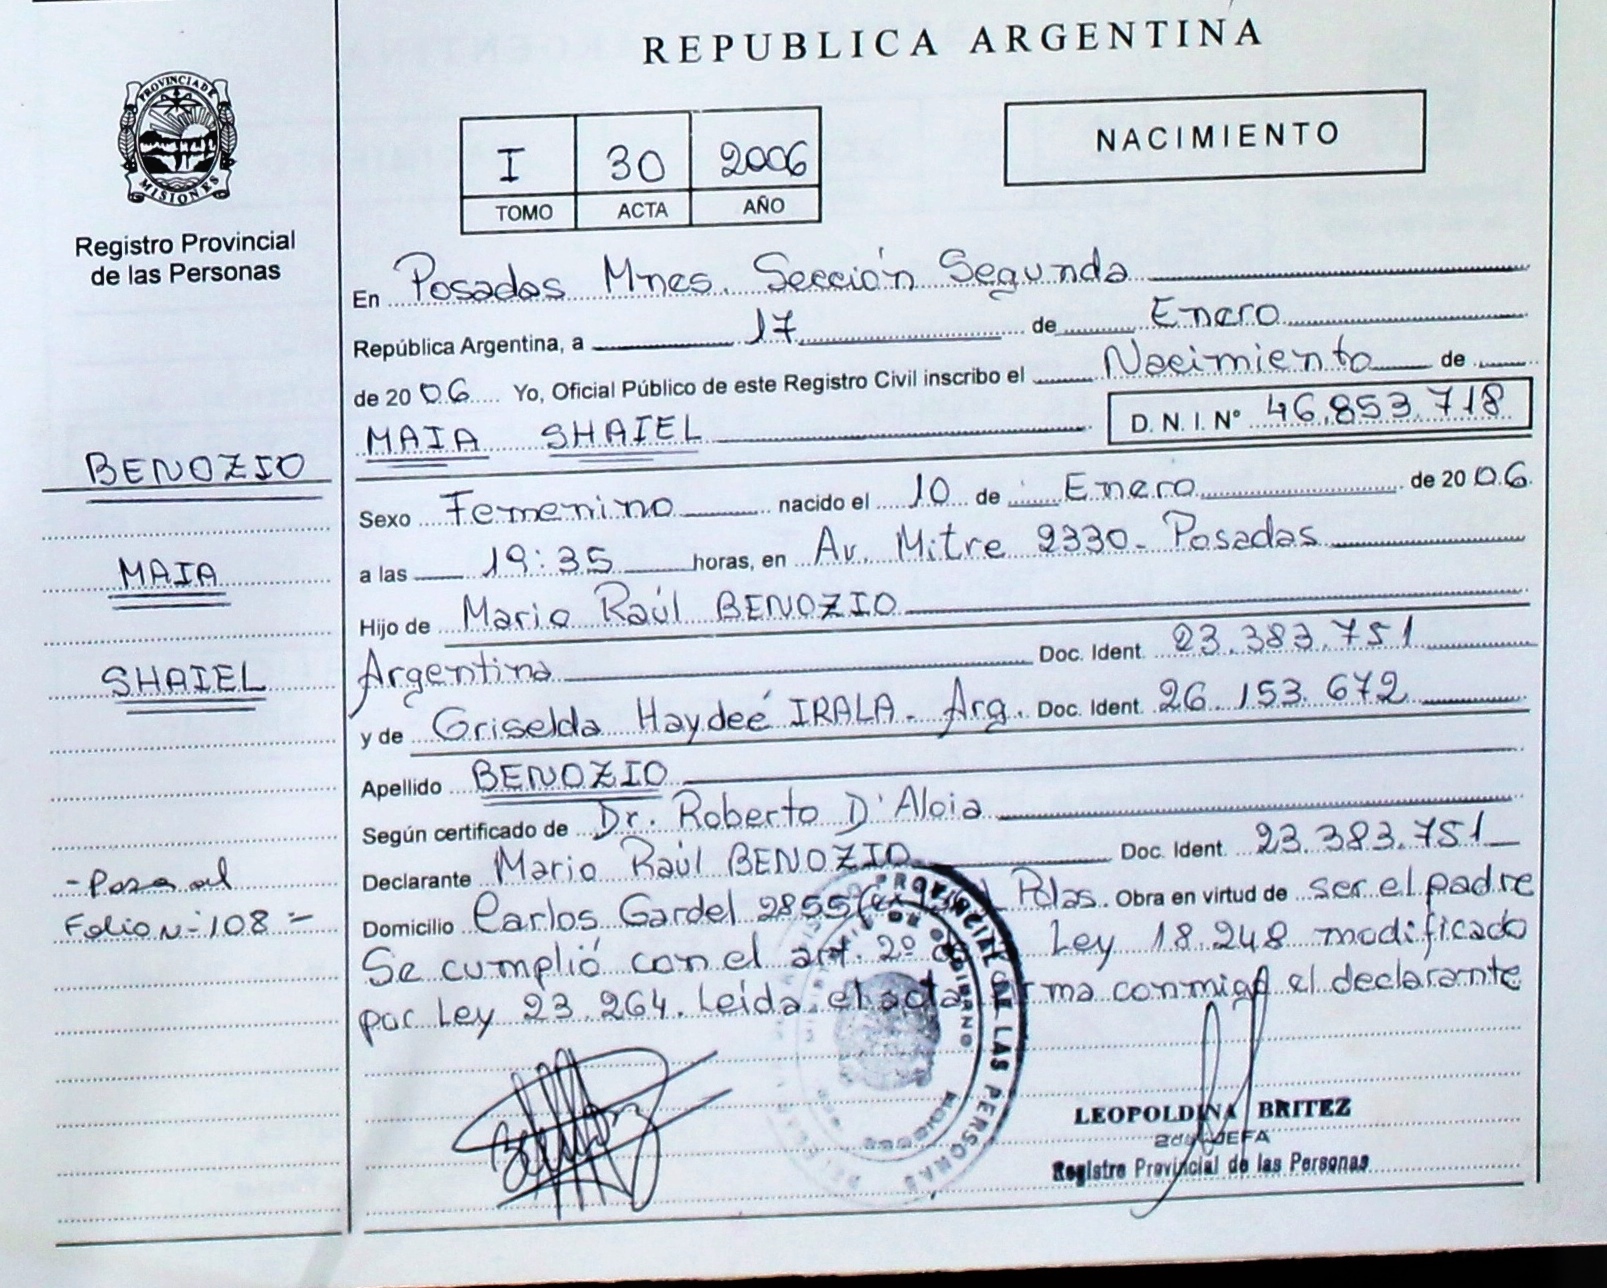 REPUBLICA ARGENTINA
PROVINCIA DE
MISIONES
Registro Provincial
de las Personas
I 30 2006
TOMO ACTA AÑO
NACIMIENTO
En Posadas Mnes. Sección Segunda
República Argentina, a 17 de Enero
de 2006 Yo, Oficial Público de este Registro Civil inscribo el Nacimiento de
MAIA SHAIEL D. N. I. Nº 46.853.718
BENOZIO
MAIA
SHAIEL
Sexo Femenino nacido el 10 de Enero de 2006.
a las 19:35 horas, en Av. Mitre 2330- Posadas
Hijo de Mario Raúl BENOZIO
Argentina Doc. Ident. 23.383.751
y de Griselda Haydeé IRALA. Arg. Doc. Ident. 26.153.672
Apellido BENOZIO
Según certificado de Dr. Roberto D'Aloia
Declarante Mario Raúl BENOZIO Doc. Ident. 23.383.751
- Pasa al
Folio Nº 108 =
Domicilio Carlos Gardel 2855 Pdas. Obra en virtud de ser el padre
Se cumplió con el art. 2º Ley 18.248 modificado
por Ley 23.264. Leída el acta firma conmigo el declarante
PROVINCIAL DE LAS PERSONAS
LEOPOLDINA BRITEZ
JEFA
Registro Provincial de las Personas